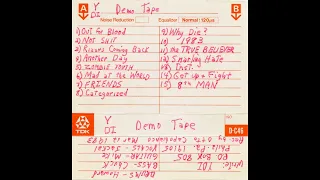 A
YDI Demo Tape
B
Noise Reduction
Equalizer Normal: 120µs
1) Out for Blood
2) Not Shit
3) Rizzos Coming Back
4) Another Day
5) ZOMBIE YOUTH
6) Mad at the WORLD
7) FRIENDS
8) Categorized
9) Why Die?
10) 1983
11) the TRUE BELIEVER
12) Snarling Hate
13) Inst.
14) Get up + Fight
15) 8th MAN
TDK
YDI Demo Tape
D-C46
DRUMS - Howard
BASS - Chuck
GUITAR - M.
VOCALS - Jackal
PO BOX 805
Phila. Pa. 19105
Write: YDI